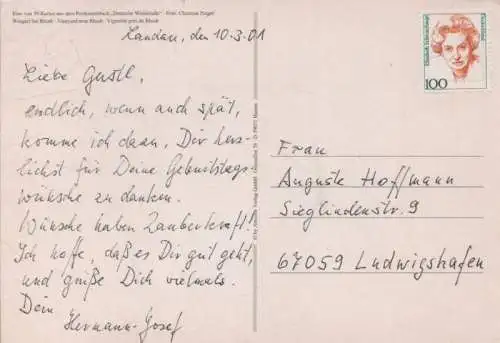 Eine von 30 Karten aus dem Postkartenbuch „Deutsche Weinstraße" · Foto: Christian Prager
Wingert bei Rhodt · Vineyard near Rhodt · Vignoble près de Rhodt
Landau, den 10.3.01
Liebe Gustl,
endlich, wenn auch spät,
komme ich dazu, Dir herz-
lichst für Deine Geburtstags-
wünsche zu danken.
Wünsche haben Zauberkraft!
Ich hoffe, daß es Dir gut geht,
und grüße Dich vielmals.
Dein
Hermann-Josef
100
Frau
Auguste Hoffmann
Sieglindenstr. 9
67059 Ludwigshafen